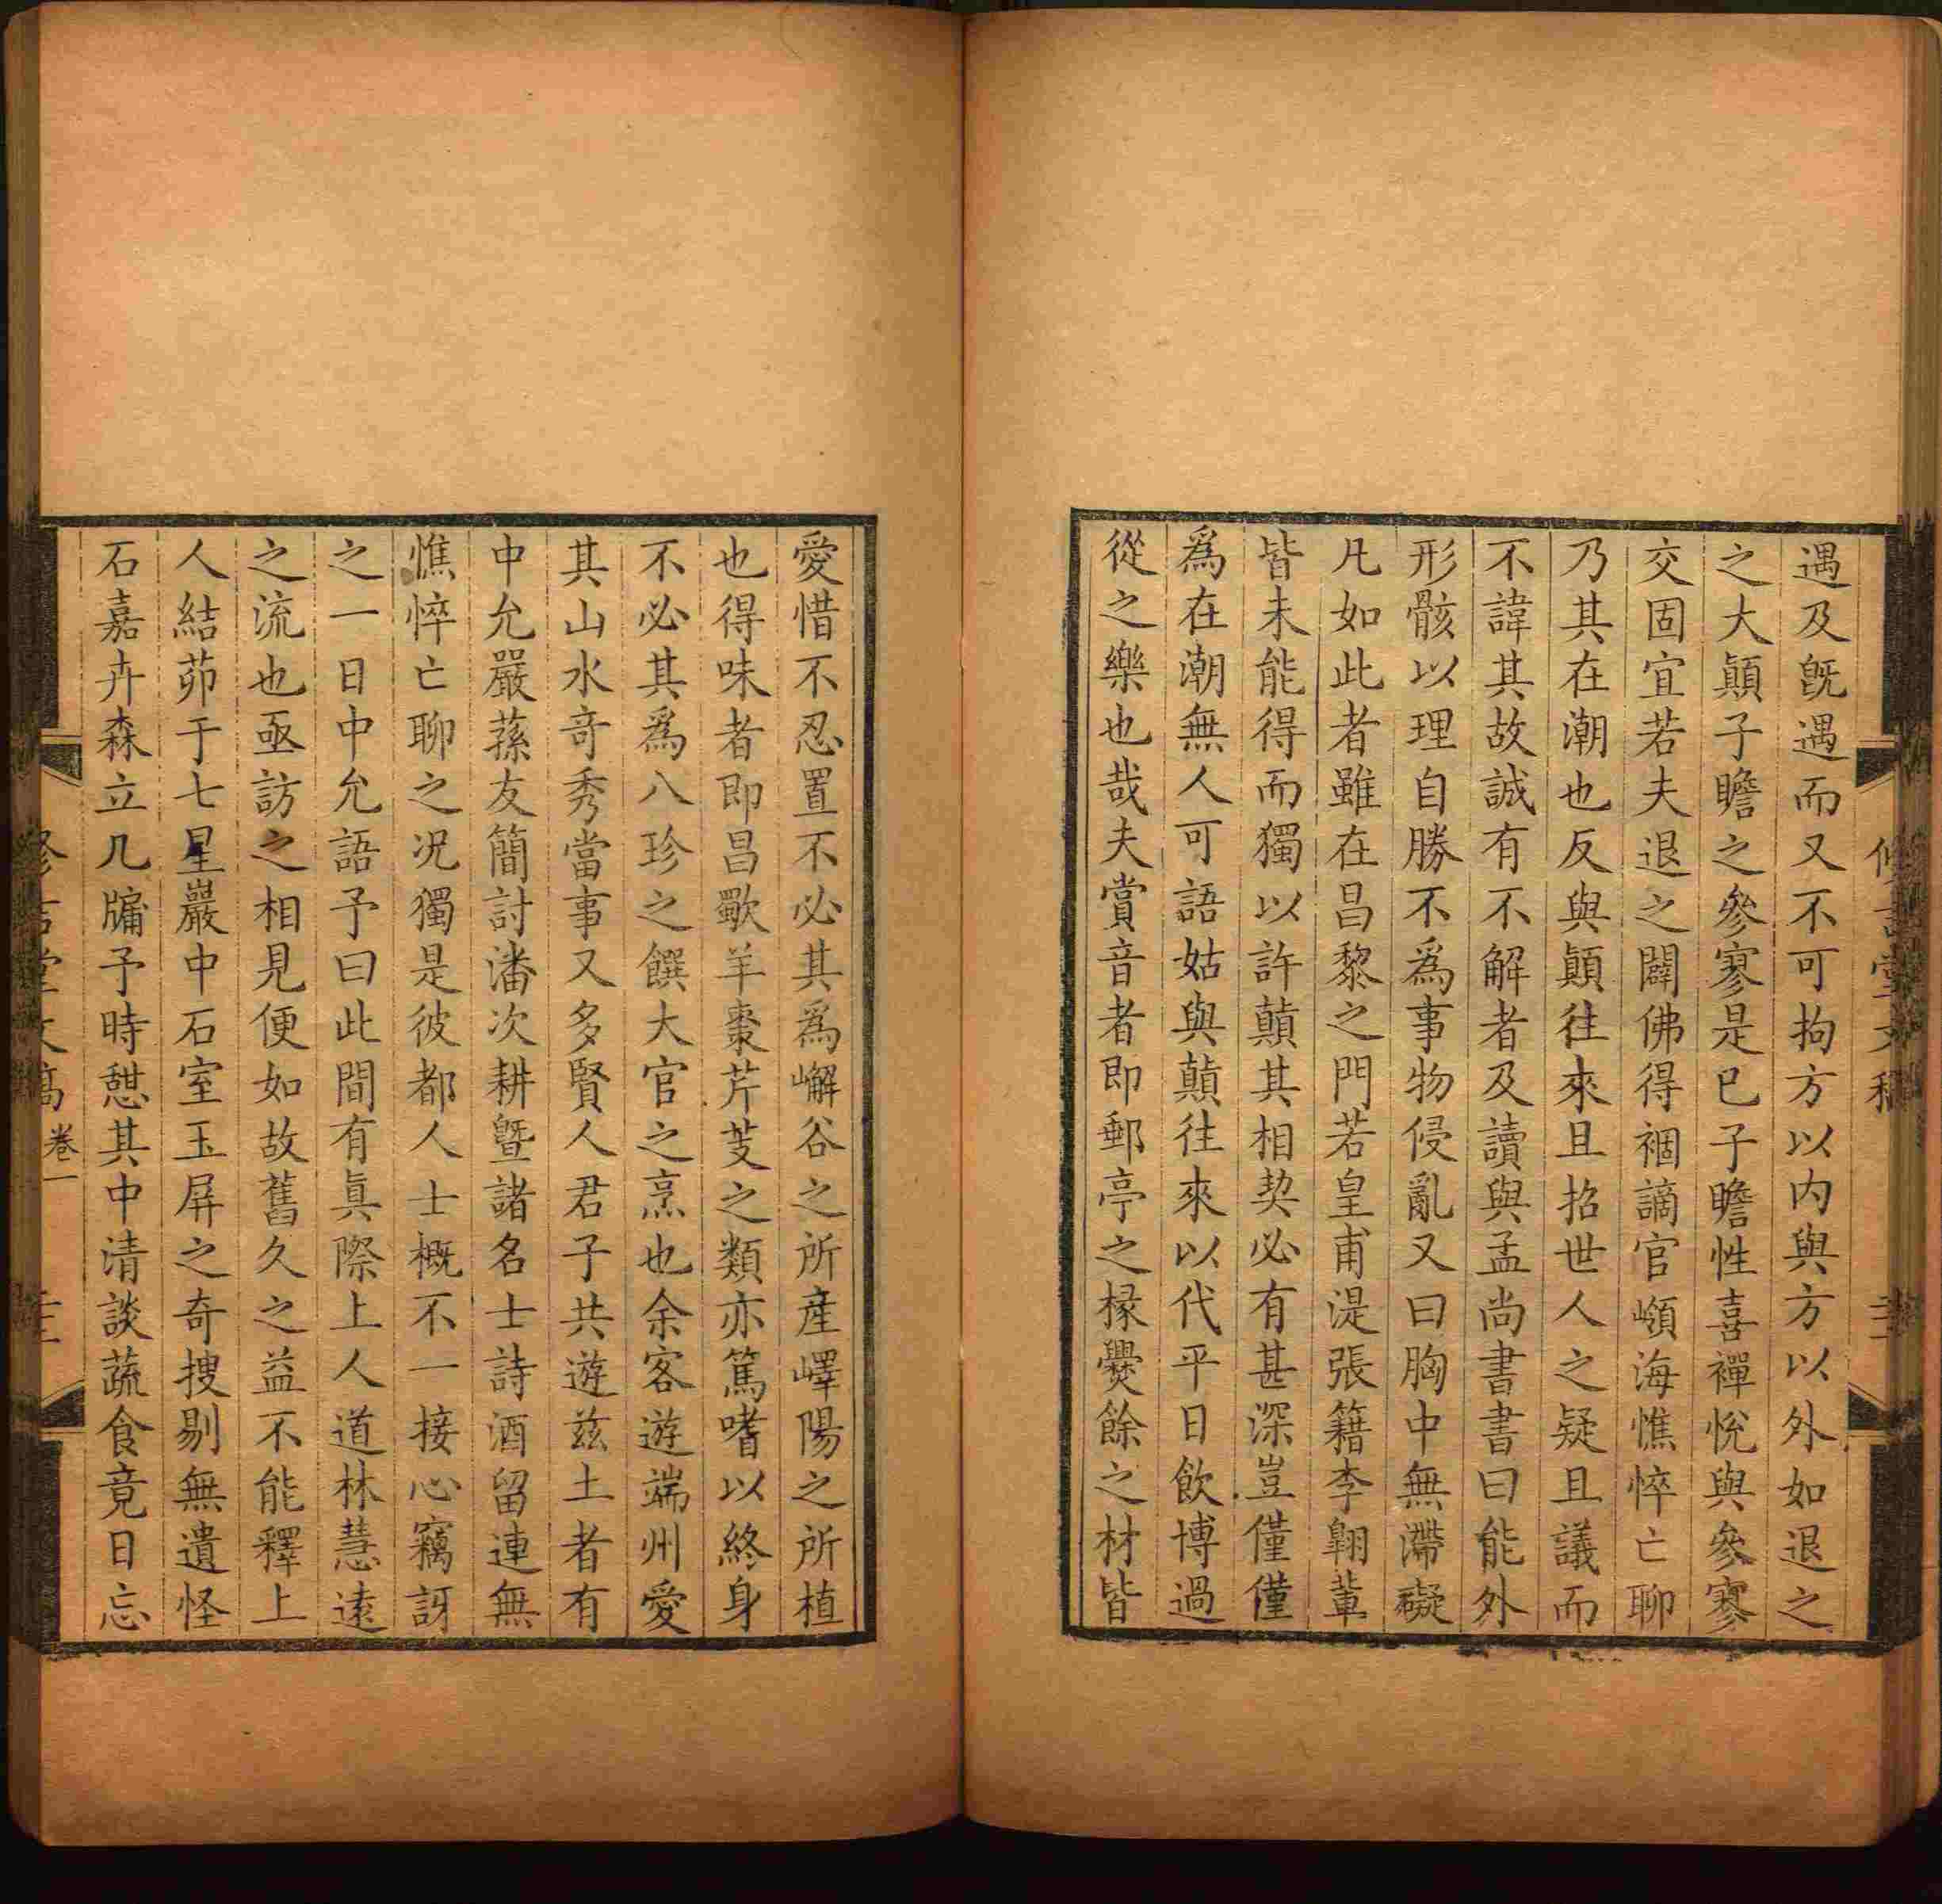 遇及旣遇而又不可拘方以内與方以外如退之
之大顚子瞻之參寥是已子瞻性喜禪悅與參寥
交固宜若夫退之闢佛得禍謫官嶺海憔悴亡聊
乃其在潮也反與顚往來且招世人之疑且議而
不諱其故誠有不解者及讀與孟尚書書曰能外
形骸以理自勝不爲事物侵亂又曰胸中無滯礙
凡如此者雖在昌黎之門若皇甫湜張籍李翺輩
皆未能得而獨以許顚其相契必有甚深豈僅僅
爲在潮無人可語姑與顚往來以代平日飲博過
從之樂也哉夫賞音者即郵亭之椽爨餘之材皆
愛惜不忍置不必其爲嶰谷之所産嶧陽之所植
也得味者即昌歜羊棗芹芰之類亦篤嗜以終身
不必其爲八珍之饌大官之烹也余客遊端州愛
其山水竒秀當事又多賢人君子共遊茲土者有
中允嚴蓀友簡討潘次耕曁諸名士詩酒留連無
憔悴亡聊之况獨是彼都人士概不一接心竊訝
之一日中允語予曰此間有眞際上人道林慧遠
之流也亟訪之相見便如故舊久之益不能釋上
人結茆于七星巖中石室玉屏之奇搜剔無遺怪
石嘉卉森立几牖予時憇其中清談蔬食竟日忘
卷一